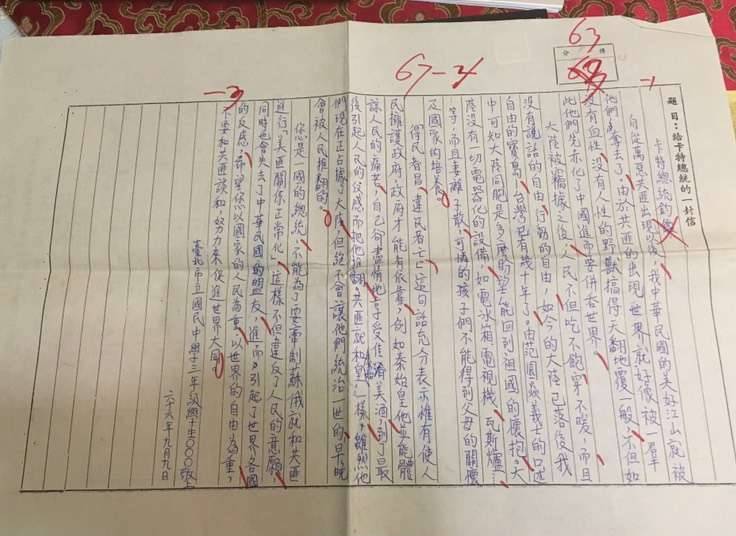 63
得分
67-4
-1
題目：給卡特總統的一封信
卡特總統鈞
自從萬惡共匪出現以後，我中華民國的美好江山就被
他們走奪去了，由於共匪的出現世界就好像被一羣
沒有血性，沒有人性的野獸搞得天翻地覆一般，不但如
此他們先赤化了中國進而要併吞世界。
大陸被竊據之後，人民不但吃不飽，穿不暖，而且
沒有說話的自由，行動的自由，如今的大陸已落後我
自由的寶島，台灣已有幾十年了。由范園焱義士的口述
中可知大陸同胞是多麼盼望能回到祖國的懷抱。大
陸沒有一切電器化的設備，如電冰箱電視機、瓦斯爐
等，而且妻離子散，可憐的孩子們不能得到父母的關懷
及國家的培養。
得民者昌，違民者亡，這句話充分表示惟有使人
民擁護政府，政府才能有依靠，例如秦始皇他無能體
諒人民的痛苦，自己卻盡情地享受佳餚美酒，到了最
後引起人民的反感而把他推翻。共匪就和皇一樣，雖然他
們現在正占據了大陸，但絕不會讓他們統治一世的，早晚
會被人民推翻的。
您是一國的總統，不能為了要牽制蘇俄就和共匪
進行「美匪關係正常化」，這樣不但違反了人民的意願，
同時也會失去了中華民國的盟友，進而引起了世界各國
的反感，希望您以國家的人民為重，以世界的自由為重，
不要和共匪談和，努力來促進世界大同。
-3
臺北市立國民中學十三年級
六十六年九月九日